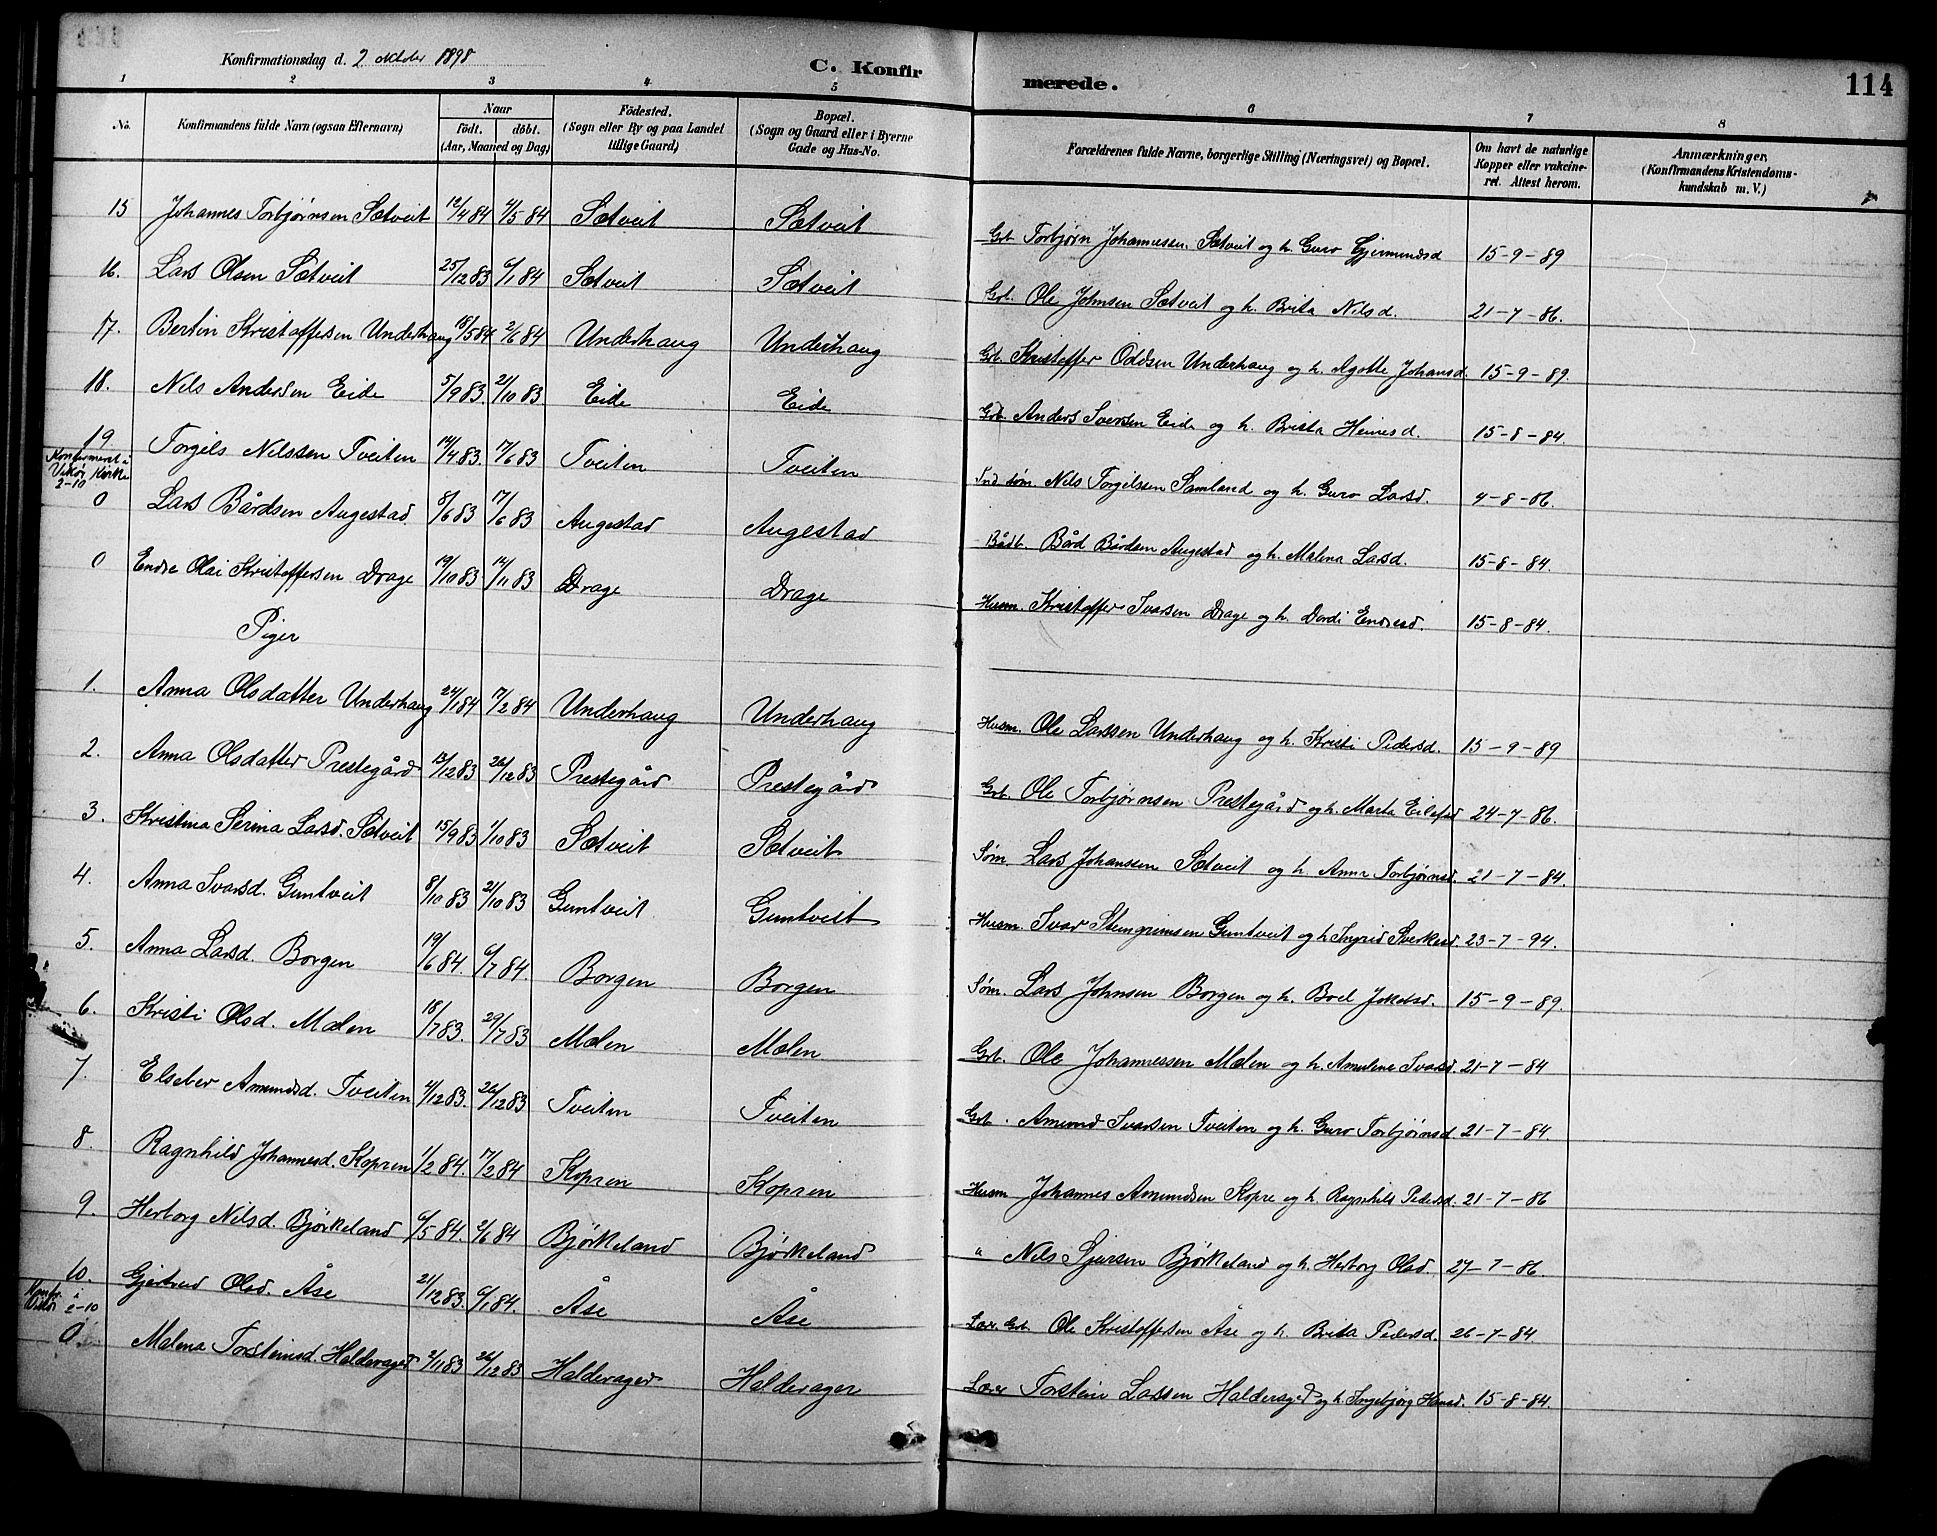 Konfirmationsdag d. 2 oktober 1898
C. Konfirmerede.
114
1 2 3 4 5 6 7 8
No. | Konfirmandens fulde Navn (ogsaa Efternavn) | Naar födt. döbt. (Aar, Maaned og Dag) | Födested. (Sogn eller By og paa Landet tillige Gaard) | Bopæl. (Sogn og Gaard eller i Byerne Gade og Hus-No. | Forældrenes fulde Navne, borgerlige Stilling (Næringsvei) og Bopæl. | Om havt de naturlige Kopper eller vakcineret. Attest herom. | Anmærkninger, (Konfirmandens Kristendomskundskab m. V.)
15 Johannes Torbjørnsen Sætveit 12/4 84 4/5 84 Sætveit Sætveit Grb. Torbjørn Johannessen Sætveit og h. Guro Gjermundsd 15-9-89
16. Lars Olsen Sætveit 25/12 83 6/1 84 Sætveit Sætveit Grb. Ole Johnsen Sætveit og h. Brita Nilsd. 21-7-86.
17. Bertin Kristoffersen Underhaug 18/5 84 2/6 84 Underhaug Underhaug Grb. Kristoffer Oddsen Underhaug og h. Agotte Johansd. 15-9-89.
18. Nils Andersen Eide 5/9 83 21/10 83 Eide Eide Grb. Anders Iversen Eide og h. Brita Heinesd. 15-8-84
19 Torgils Nilssen Tveiten 14/4 83. 17/6 83 Tveiten Tveiten Ind. søm. Nils Torgilssen Samland og h. Guro Larsd. 4-8-86.
Konfirmeret i Vikør Kirke 2-10
0 Lars Bårdsen Augestad 8/6 83 17/6 83 Augestad Augestad Bådb. Bård Bårdsen Augestad og h. Malena Larsd. 15-8-84.
0 Endre Olai Kristoffersen Drage 19/10 83 14/11 83 Drage Drage Husm. Kristoffer Ivarsen Drage og h. Dordi Endresd. 15-8-84.
Piger
1. Anna Olsdatter Underhaug 24/1 84 17/2 84 Underhaug Underhaug Husm. Ole Larssen Underhaug og h. Kristi Pedersd. 15-9-89
2. Anna Olsdatter Prestegård 13/12 83 26/12 83 Prestegård Prestegård Grb. Ole Torbjørnsen Prestegård og h. Marta Eilefsd 24-7-86.
3. Kristina Serina Larsd. Sætveit 15/9 83 1/10 83 Sætveit Sætveit Søm. Lars Johanssen Sætveit og h. Anna Torbjørnsd. 21-7-84.
4. Anna Ivarsd. Guntveit 8/10 83 21/10 83 Guntveit Guntveit Husm. Ivar Steingrimsen Guntveit og h. Ingrid Sverkesd. 23-7-94.
5. Anna Larsd. Borgen 19/6 84. 6/7 84. Borgen Borgen Søm. Lars Johnsen Borgen og h. Boel 15-9-89.
6. Kristi Olsd. Mælen 18/7 83. 29/7 83 Mælen Mælen Grb. Ole Johannessen Mælen og h. Amulene Ivarsd. 21-7-84
7. Elseber Amundsd. Tveiten 4/12 83. 26/12 83 Tveiten Tveiten Grb. Amund Ivarsen Tveiten og h. Guro Torbjørnsd 21-7-84
8. Ragnhild Johannesd. Kopren 1/2 84. 17/2 84 Kopren Kopren Husm Johannes Amundsen Kopre og h. Ragnhild Pedersd. 21-7-86
9. Herborg Nilsd. Bjørkeland 6/5 84. 2/6 84 Bjørkeland Bjørkeland " Nils Sjursen Bjørkeland og h. Herborg Olsd. 27-7-86.
10. Gjertrud Olsd. Åse 21/12 83. 6/1 84. Åse Åse Lær. Grb. Ole Kristoffersen Åse og h. Brita Pedersd. 26-7-84
Konfr. i Vikør 2-10
0 Malena Torsteinsd. Halderager 2/11 83 26/12 83 Halderager Halderager Lær Torstein Larssen Halderager og h. Ingebjørg Hansd. 15-8-84.